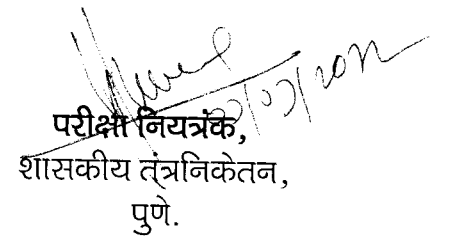 परीक्षा नियत्रंक,
शासकीय तंत्रनिकेतन,
पुणे.